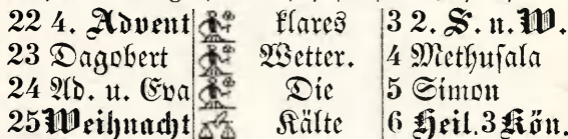 22 4. Advent klares 3 2. S. n. W.
23 Dagobert Wetter. 4 Methusala
24 Ad. u. Eva Die 5 Simon
25 Weihnacht Kälte 6 Heil. 3 Kön.